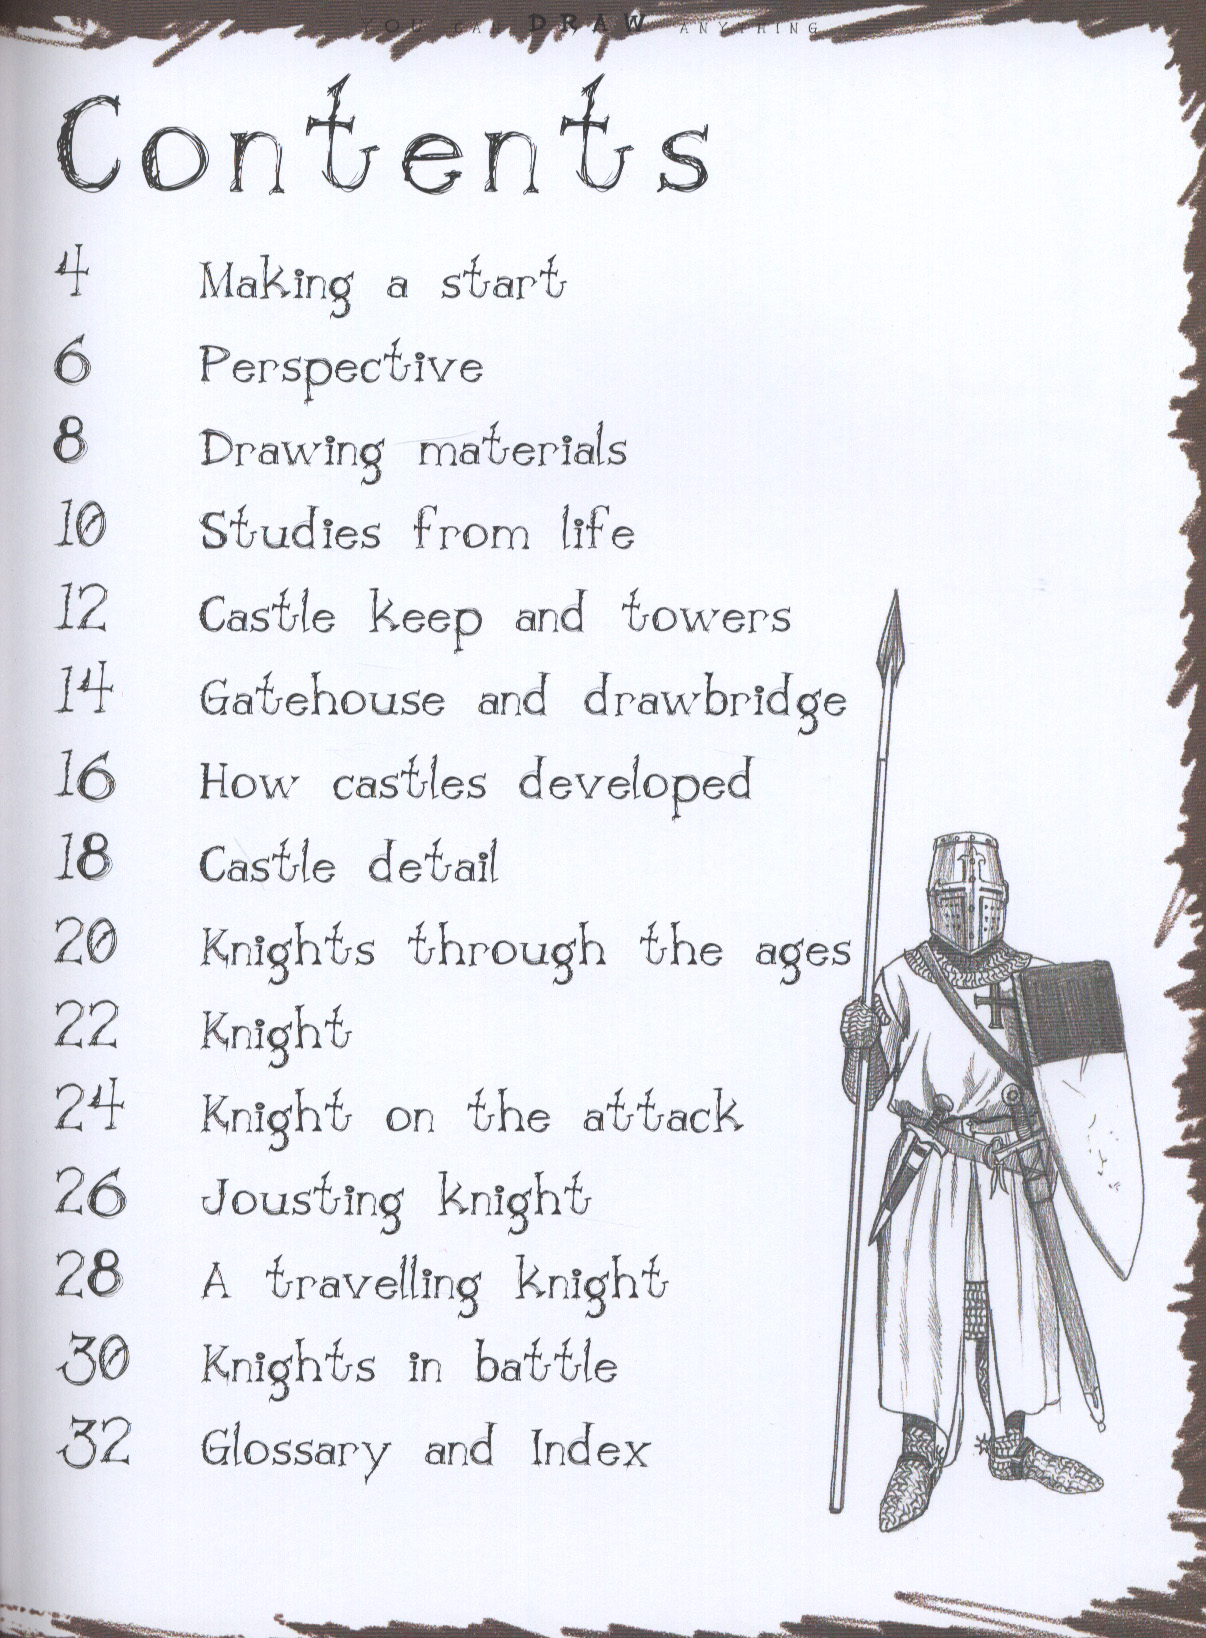 YOU CAN DRAW ANYTHING
Contents
4 Making a start
6 Perspective
8 Drawing materials
10 Studies from life
12 Castle keep and towers
14 Gatehouse and drawbridge
16 How castles developed
18 Castle detail
20 Knights through the ages
22 Knight
24 Knight on the attack
26 Jousting knight
28 A travelling knight
30 Knights in battle
32 Glossary and Index